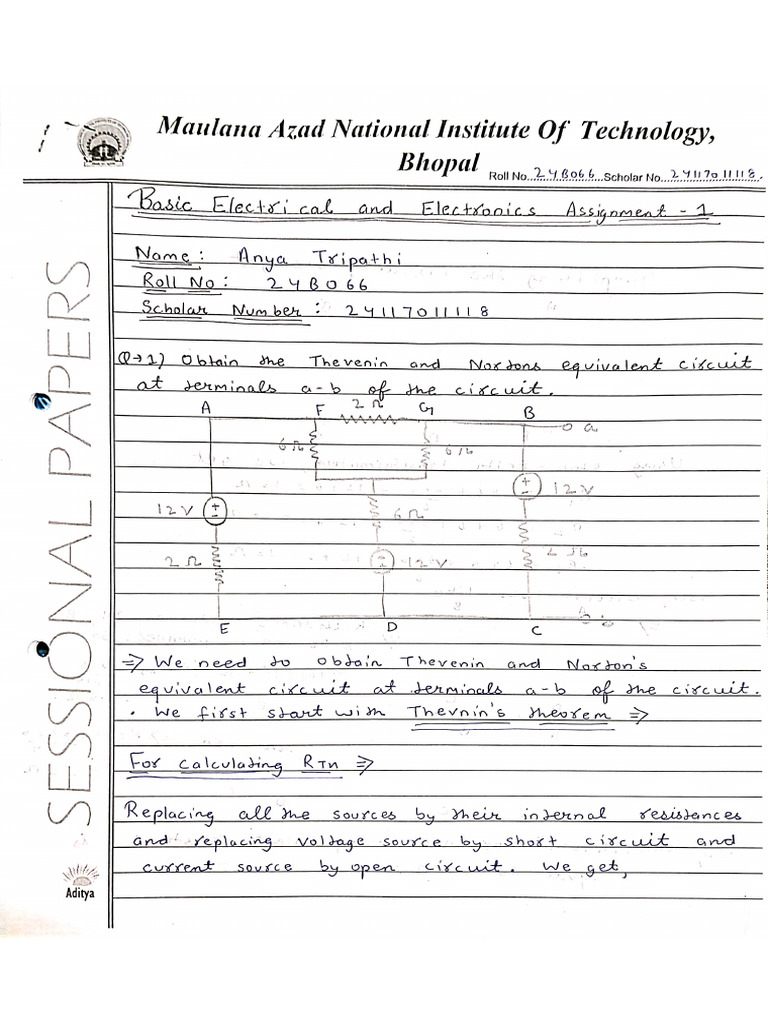 Maulana Azad National Institute Of Technology,
Bhopal
Roll No...24B066...Scholar No...24117011118.
Basic Electrical and Electronics Assignment - 1
Name : Anya Tripathi
Roll No : 24B066
Scholar Number : 24117011118
Q→1) Obtain the Thevenin and Nortons equivalent circuit
at terminals a-b of the circuit.
A F 2Ω G B
a
6Ω 6Ω
12V 6Ω 12V
2Ω 12V 2Ω
b
E D C
⇒ We need to obtain Thevenin and Norton's
equivalent circuit at terminals a-b of the circuit.
. We first start with Thevnin's theorem ⇒
For calculating RTh ⇒
Replacing all the sources by their internal resistances
and replacing voltage source by short circuit and
current source by open circuit. We get,
SESSIONAL PAPERS
Aditya